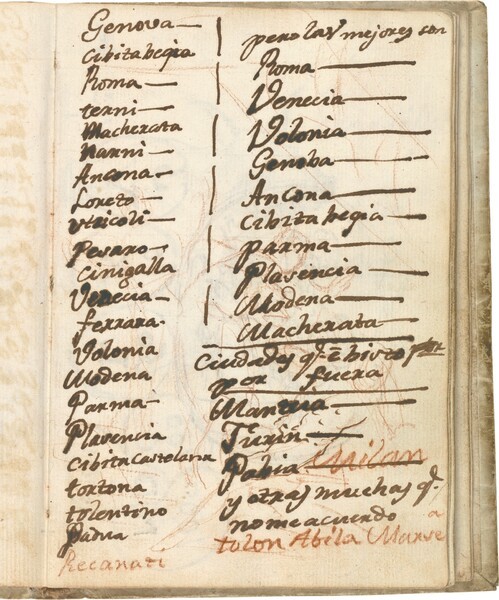 Genova
Cibita begia
Roma
terni
Macherata
Narni
Ancona
Loreto
Pesaro
Cinigalla
Venecia
ferrara.
Volonia
Modena
Parma
Plasencia
Cibita castelana
tortona
tolentino
Padua
Recanati
pero las mejores son
Roma
Venecia
Volonia
Genoba
Ancona
Cibita begia
parma
Plasencia
Modena
Macherata
Ciudades q.e e bisto
por fuera
Mantua
Turin
Pabia Milan
y otras muchas q.e
no me acuerdo
tolon Abila Marse
a